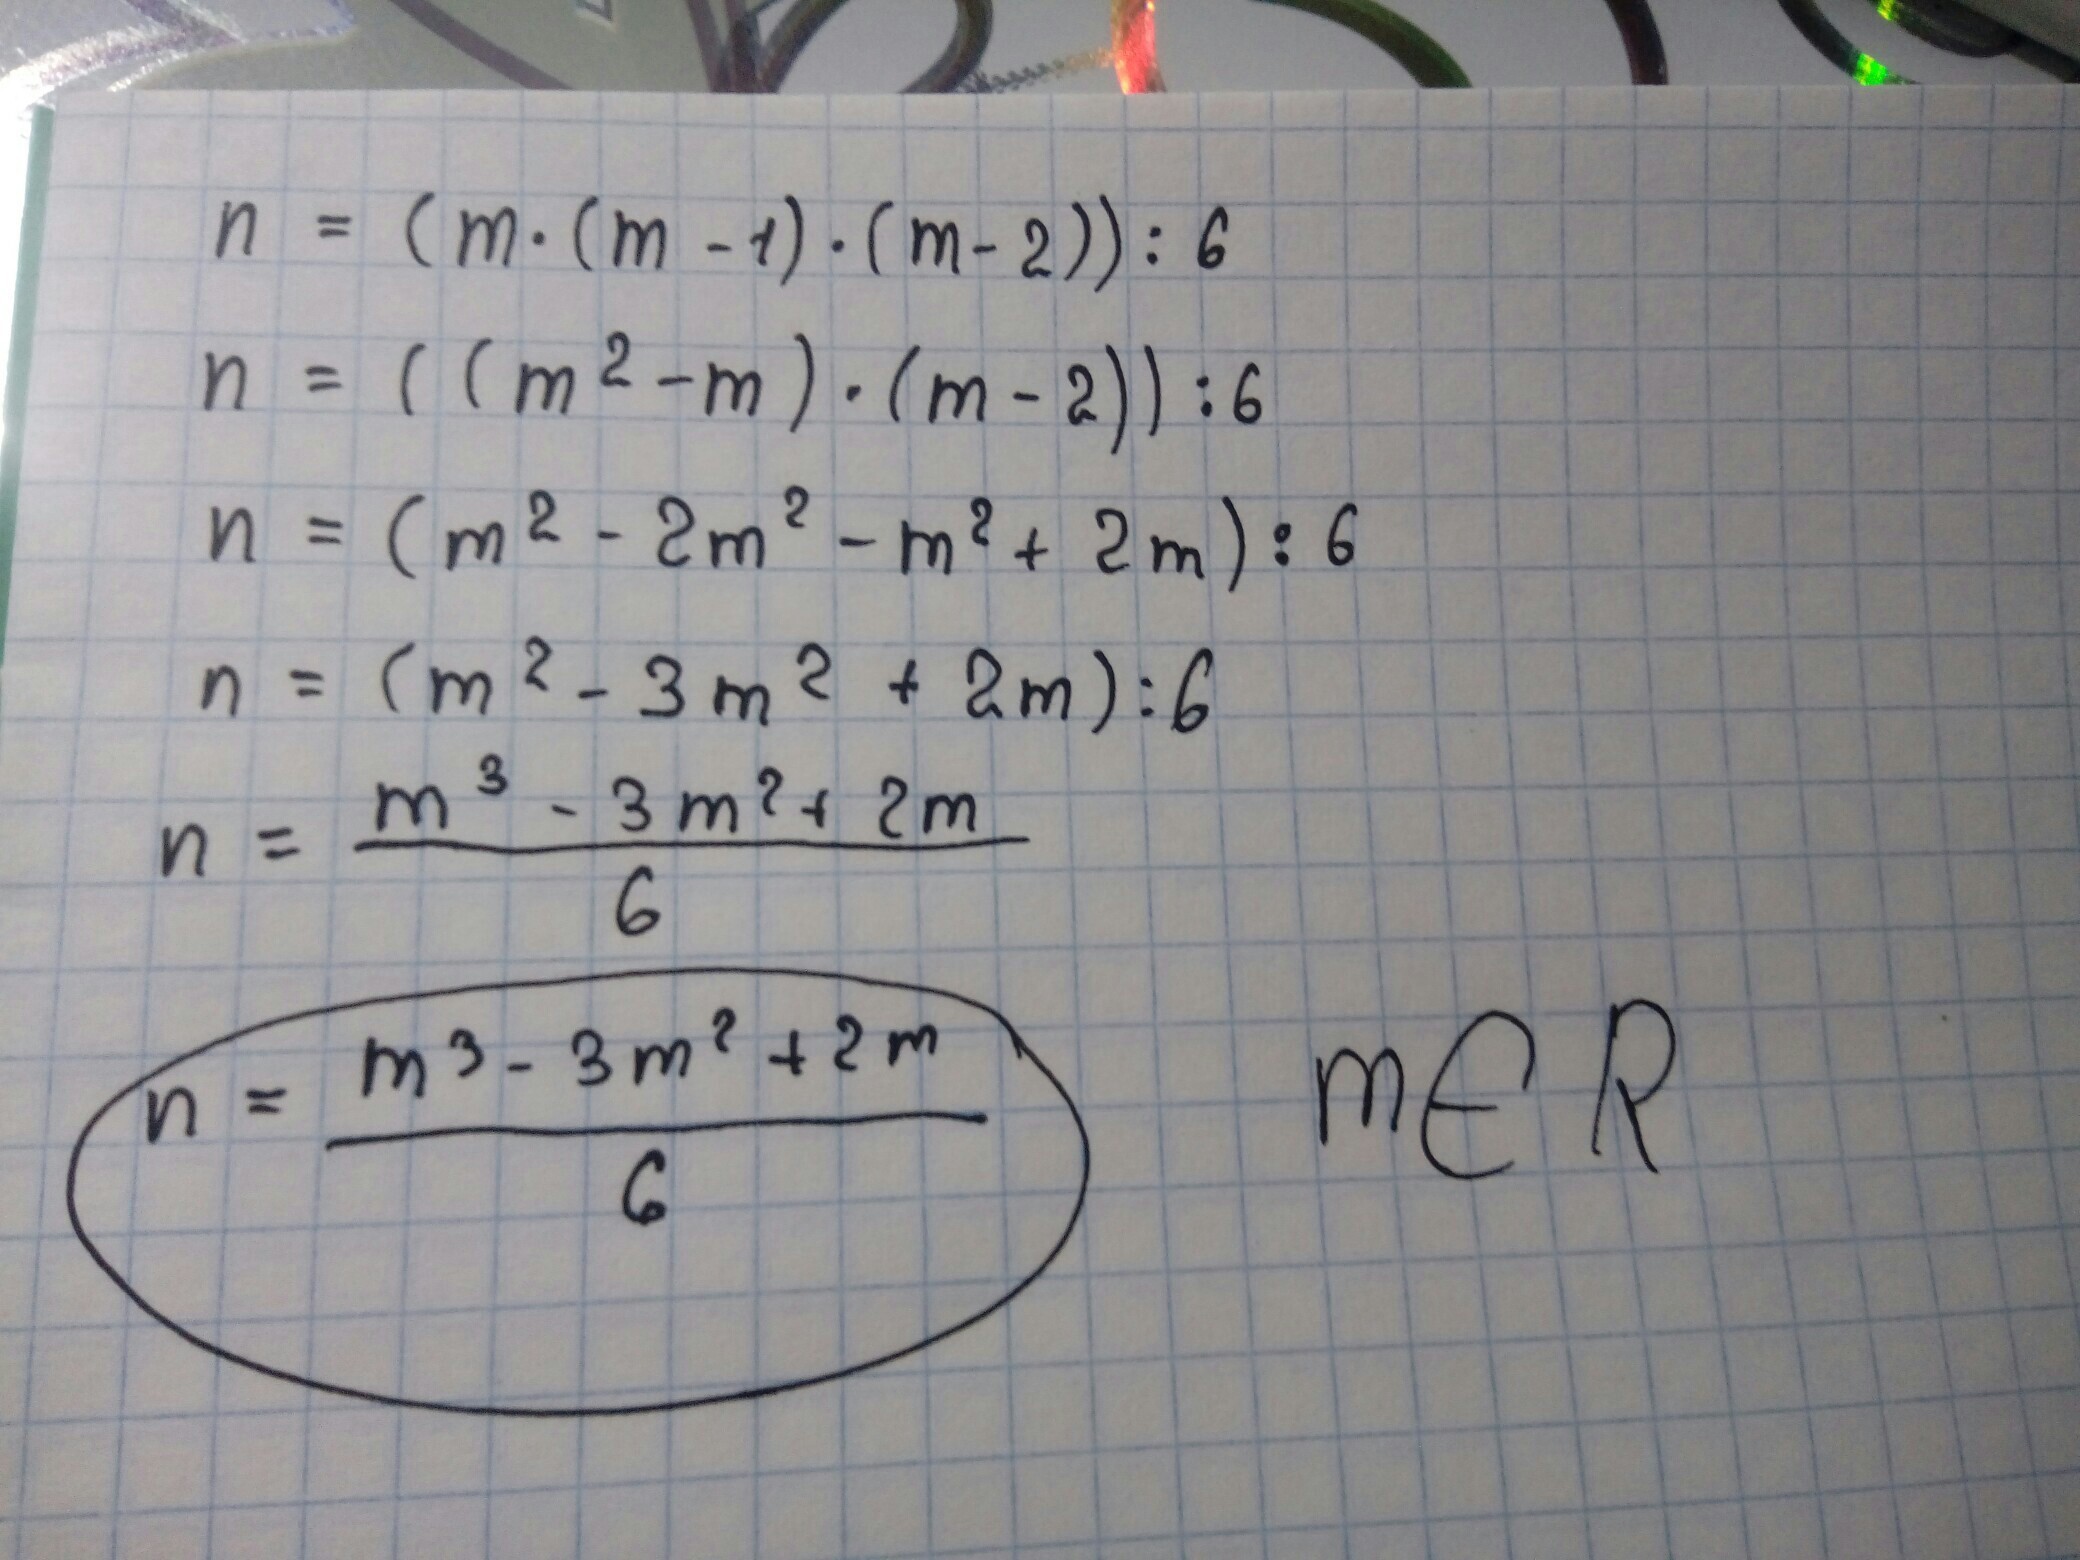 n = (m·(m-1)·(m-2)):6
n = ((m²-m)·(m-2)):6
n = (m²-2m²-m²+2m):6
n = (m²-3m²+2m):6
n = (m³-3m²+2m)/6
n = (m³-3m²+2m)/6 m∈R